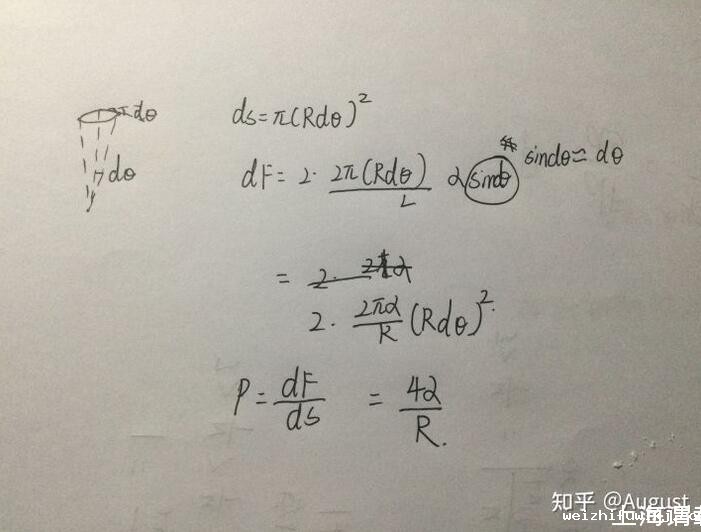 dθ
dθ
ds = π(Rdθ)²
dF = 2· 2π(Rdθ)/L α sindθ
sindθ ≃ dθ
=
2· 2πα/R (Rdθ)².
P = dF/ds = 4α/R.
知乎 @August